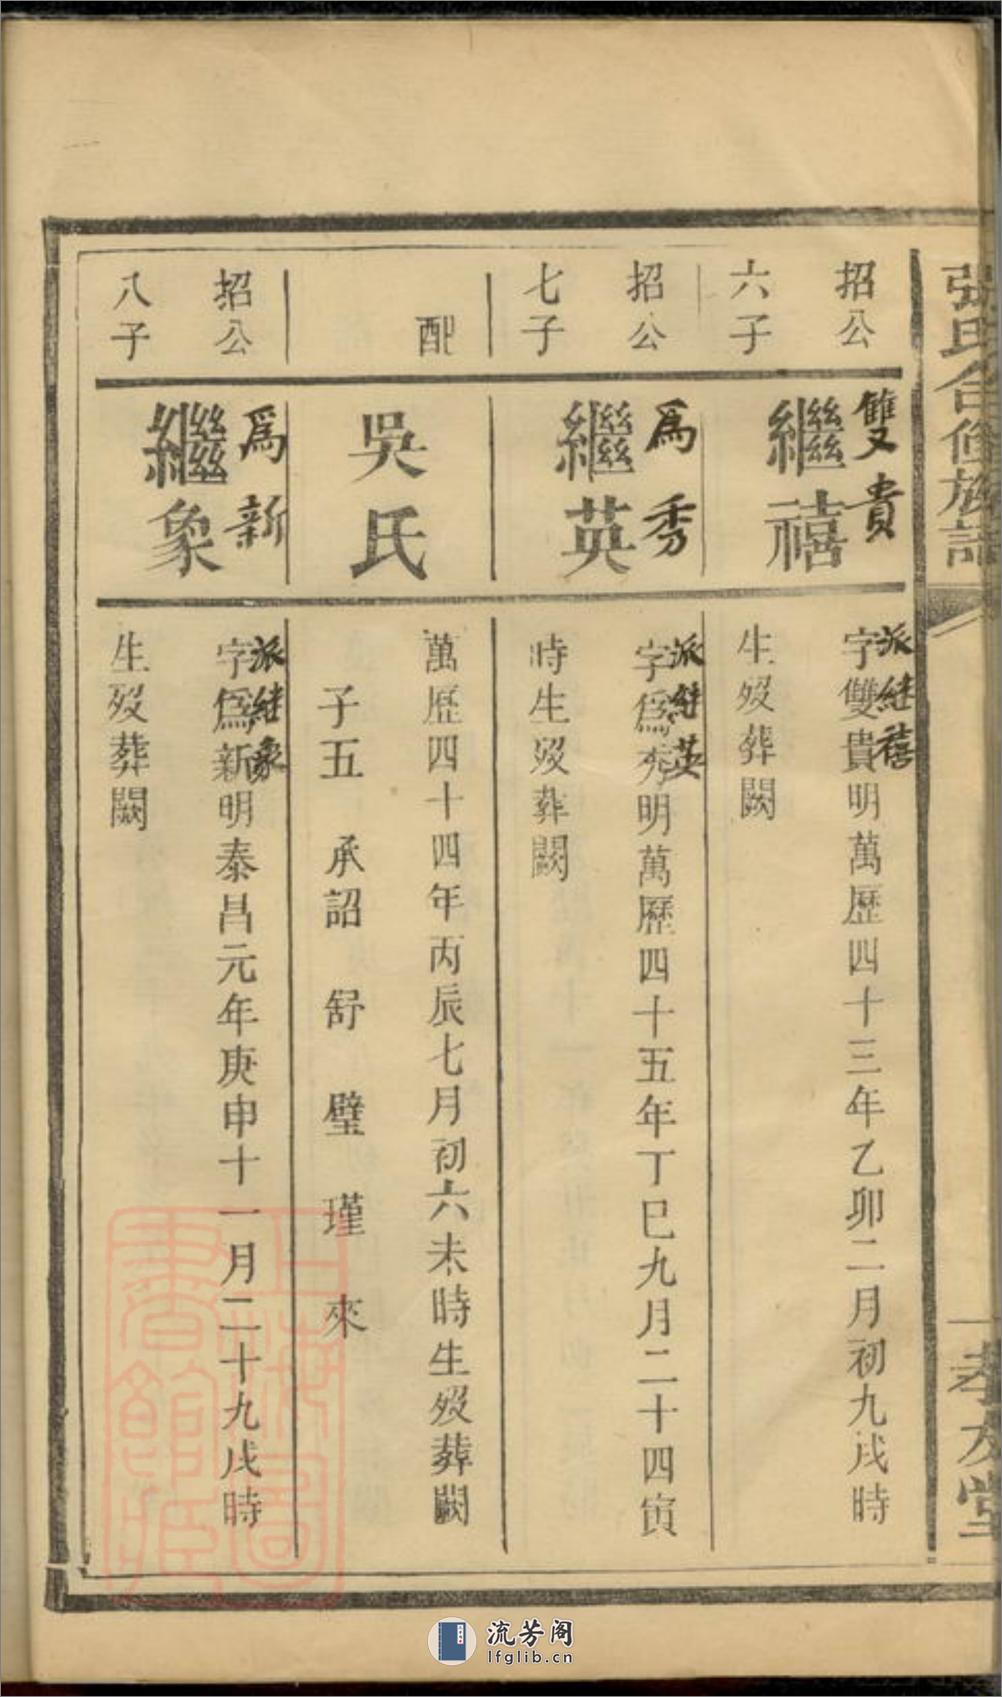 張氏合修族譜
一
孝友堂
招公
六子
雙貴
繼禧
派继禧
字雙貴明萬歷四十三年乙卯二月初九戌時
生歿葬闕
招公
七子
為秀
繼英
派继英
字爲秀明萬歷四十五年丁巳九月二十四寅
時生歿葬闕
配
吳氏
萬歷四十四年丙辰七月初六未時生歿葬闕
子五 承詔 舒 璧 瑾 來
招公
八子
爲新
繼象
派继象
字爲新明泰昌元年庚申十一月二十九戌時
生歿葬闕
上海圖書館藏
流芳阁
lfglib.cn